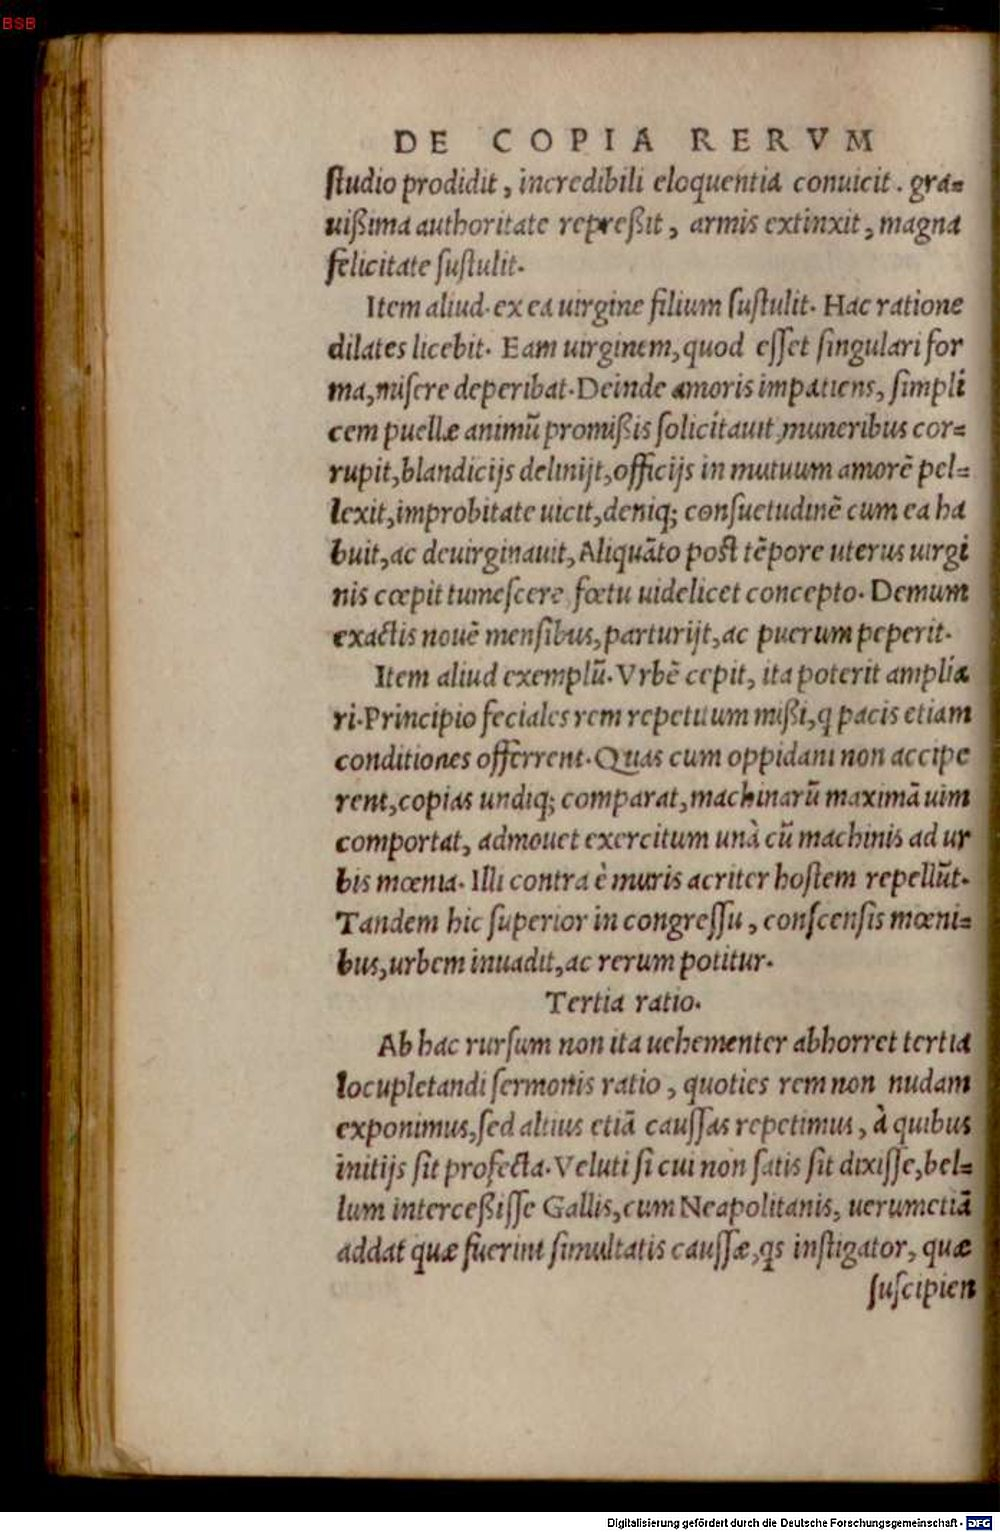 BSB
DE COPIA RERVM
ſtudio prodidit, incredibili eloquentia conuicit. gra-
uißima authoritate repreßit, armis extinxit, magna
felicitate ſuſtulit.
Item aliud. ex ea uirgine filium ſuſtulit. Hac ratione
dilates licebit. Eam uirginem, quod eſſet ſingulari for
ma, miſere deperibat. Deinde amoris impatiens, ſimpli
cem puellæ animū promißis ſolicitauit, muneribus cor-
rupit, blandicijs delinijt, officijs in mutuum amorē pel-
lexit, improbitate uicit, deniq; conſuetudinē cum ea ha
buit, ac deuirginauit, Aliquāto poſt tēpore uterus uirgi
nis cœpit tumeſcere fœtu uidelicet concepto. Demum
exactis nouē menſibus, parturijt, ac puerum peperit.
Item aliud exemplū. Vrbē cepit, ita poterit amplia
ri. Principio feciales rem repetitum mißi, q pacis etiam
conditiones offerrent. Quas cum oppidani non accipe
rent, copias undiq; comparat, machinarū maximā uim
comportat, admouet exercitum unà cū machinis ad ur
bis mœnia. Illi contra è muris acriter hoſtem repellūt.
Tandem hic ſuperior in congreſſu, conſcenſis mœni-
bus, urbem inuadit, ac rerum potitur.
Tertia ratio.
Ab hac rurſum non ita uehementer abhorret tertia
locupletandi ſermonis ratio, quoties rem non nudam
exponimus, ſed altius etiā cauſſas repetimus, à quibus
initijs ſit profecta. Veluti ſi cui non ſatis ſit dixiſſe, bel-
lum interceßiſſe Gallis, cum Neapolitanis, uerumetiā
addat quæ fuerint ſimultatis cauſſæ, qs inſtigator, quæ
ſuſcipien
Digitalisierung gefördert durch die Deutsche Forschungsgemeinschaft - DFG